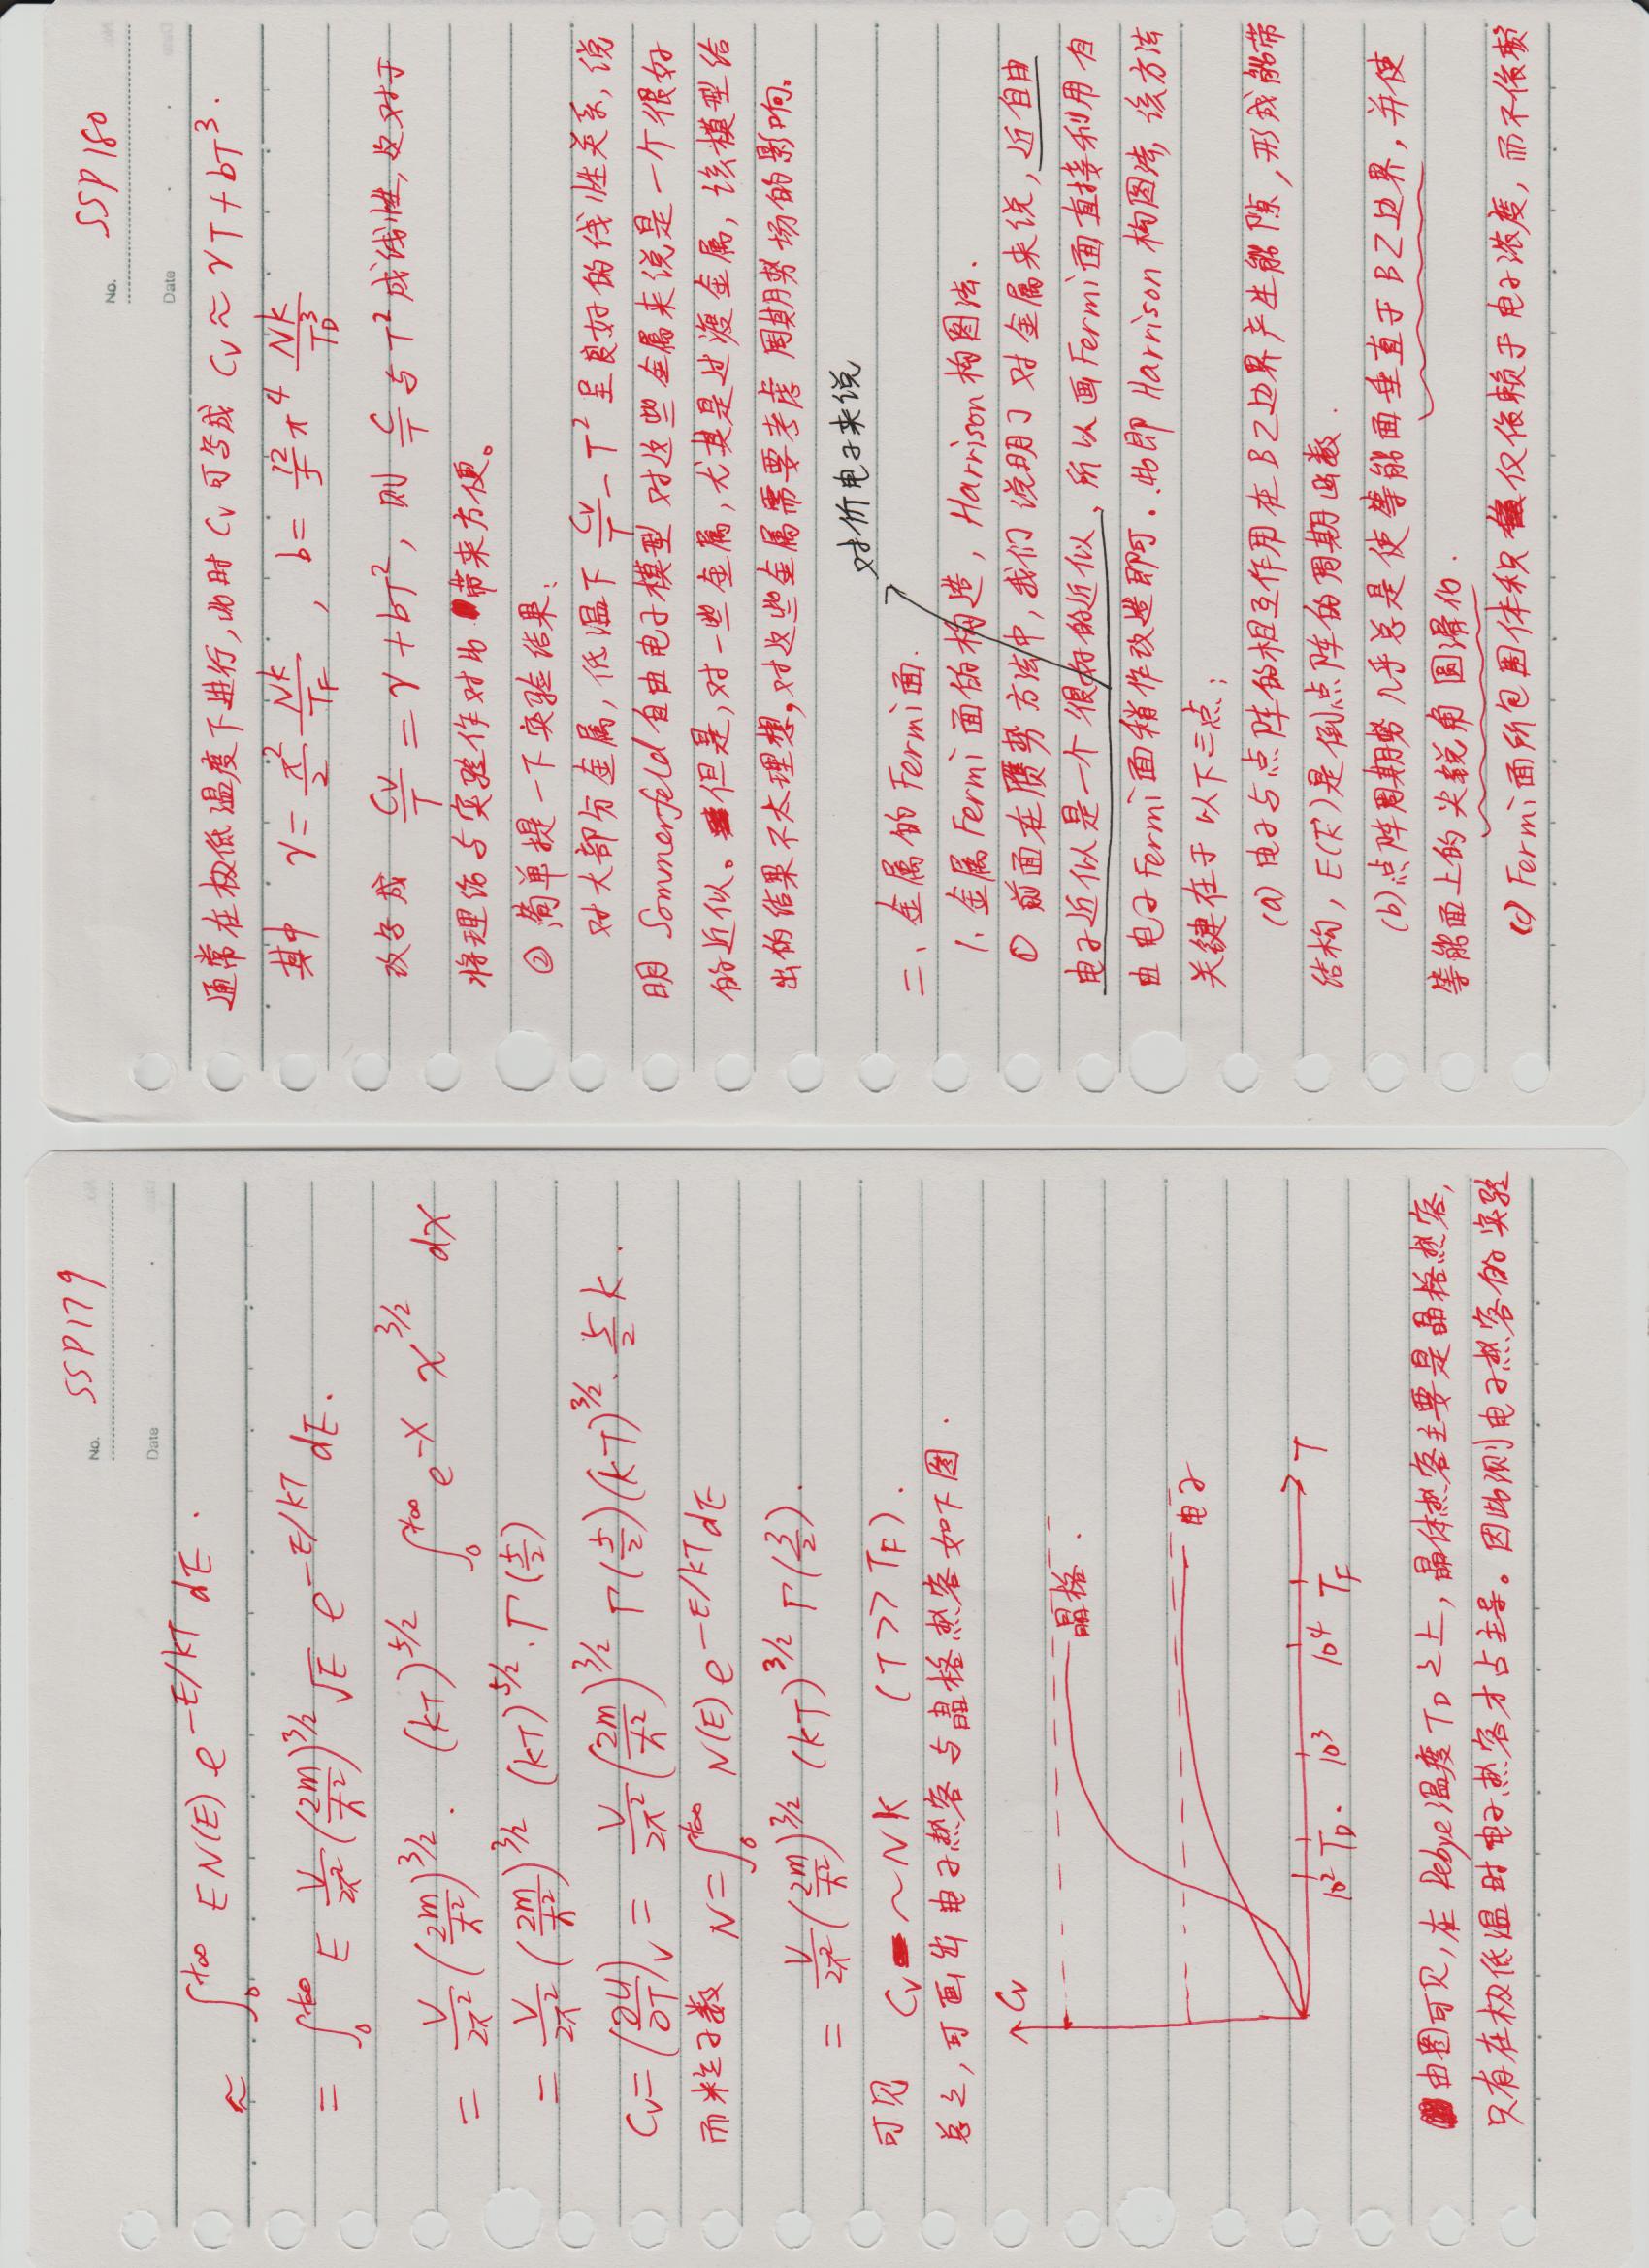 No. SSP179
Date
≈ ∫₀^{+∞} E N(E) e^{-E/kT} dE .
= ∫₀^{+∞} E \frac{V}{2π²} (\frac{2m}{ħ²})^{3/2} √E e^{-E/kT} dE.
= \frac{V}{2π²} (\frac{2m}{ħ²})^{3/2} · (kT)^{5/2} ∫₀^{+∞} e^{-x} x^{3/2} dx
= \frac{V}{2π²} (\frac{2m}{ħ²})^{3/2} (kT)^{5/2} · Γ(\frac{5}{2})
C_V = (\frac{∂U}{∂T})_V = \frac{V}{2π²} (\frac{2m}{ħ²})^{3/2} Γ(\frac{5}{2}) (kT)^{3/2} · \frac{5}{2} k .
而粒子数 N = ∫₀^{+∞} N(E) e^{-E/kT} dE
= \frac{V}{2π²} (\frac{2m}{ħ²})^{3/2} (kT)^{3/2} Γ(\frac{3}{2}) .
可见 C_V ~ Nk (T >> T_F) .
总之,可画出电子热容与晶格热容如下图 .
C_V
晶格 .
电子
10² T_D . 10³ 10⁴ T_F T
由图可见,在Debye温度T_D之上,晶体热容主要是晶格热容,
只有在极低温时电子热容才占主导。因此测电子热容的实验
No. SSP180
Date
通常在极低温度下进行,此时 C_V 可写成 C_V ≈ γT + bT³ .
其中 γ = \frac{π²}{2} \frac{Nk}{T_F} , b = \frac{12}{5} π⁴ \frac{Nk}{T_D³}
改写成 \frac{C_V}{T} = γ + bT², 则 \frac{C}{T} 与 T² 成线性,这对于
将理论与实验作对比带来方便。
② 简单提一下实验结果:
对大部分金属,低温下 \frac{C_V}{T} - T² 呈良好的线性关系,说
明 Sommerfeld 自由电子模型对这些金属来说是一个很好
的近似。但是,对一些金属,尤其是过渡金属,该模型给
出的结果不太理想,对这些金属需要考虑周期势场的影响。
对价电子来说
二、金属的Fermi面.
1. 金属Fermi面的构造, Harrison构图法.
① 前面在赝势方法中,我们说明了对金属来说,近自由
电子近似是一个很好的近似,所以画Fermi面直接利用自
由电子Fermi面稍作改造即可. 此即Harrison构图法,该方法
关键在于以下三点:
(a) 电子与点阵的相互作用在BZ边界产生能隙,形成能带
结构, E(k⃗)是倒点阵的周期函数.
(b) 点阵周期势几乎总是使等能面垂直于BZ边界,并使
等能面上的尖锐角圆滑化.
(c) Fermi面所包围体积仅依赖于电子浓度,而不依赖